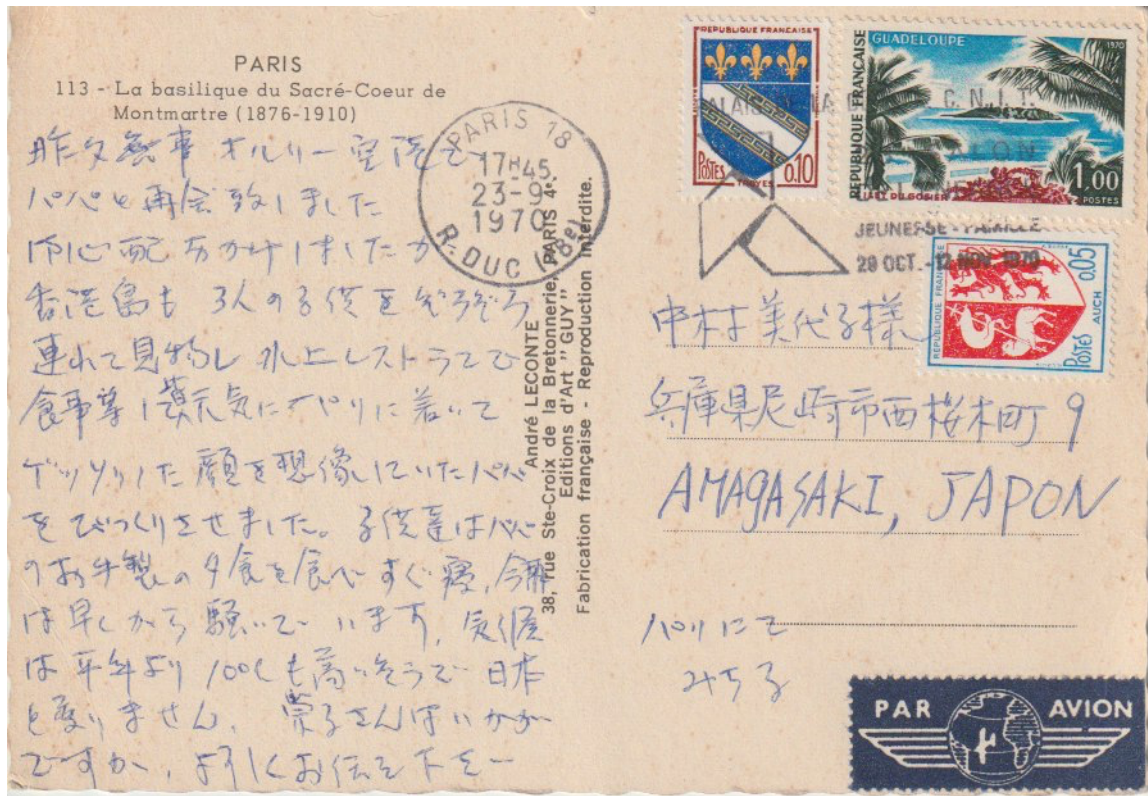 PARIS
113 - La basilique du Sacré-Coeur de
Montmartre (1876-1910)
昨夕無事オルリー空港で
パパと再会致しました
御心配おかけしましたが
香港島も3人の子供をぞろぞろ
連れて見物し水上レストランで
食事等し皆元気にパリに着いて
ゲッソリした顔を想像していたパパ
をびっくりさせました。子供達はパパ
のお手製の夕食を食べすぐ寝、今朝
は早くから騒いでいます、気候
は平年より10°Cも高いそうで日本
と変りません、栄子さんはいかが
ですか、よろしくお伝え下さい
PARIS 18
17H45
23-9
1970
R. DUC (18e)
André LECONTE
38, rue Ste-Croix de la Bretonnerie, PARIS 4e.
Editions d'Art "GUY"
Fabrication française - Reproduction interdite.
REPUBLIQUE FRANÇAISE
POSTES
TROYES
0.10
GUADELOUPE
1970
REPUBLIQUE FRANÇAISE
ILET DU GOSIER
1,00
POSTES
C.N.I.T.
JEUNESSE - FAMILLE
29 OCT. - 12 NOV. 1970
REPUBLIQUE FRANÇAISE
0.05
POSTES
AUCH
中村美代子様
兵庫県尼崎市西桜木町9
AMAGASAKI, JAPON
パリにて
みち子
PAR AVION